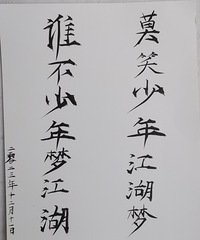 莫笑少年江湖梦
谁不少年梦江湖
二零二三年十二月十一日